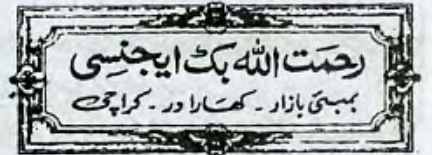 رحمت اللہ بک ایجنسی
بمبئی بازار ۔ کھارا در ۔ کراچی